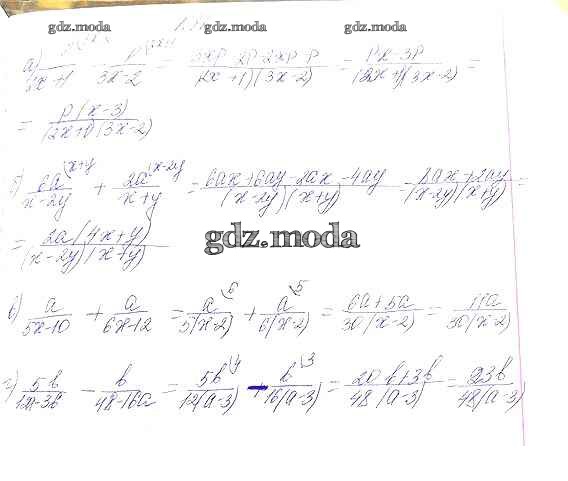 gdz.moda gdz.moda gdz.moda
а) p/(2x+1) - p/(3x-2) = (3xp-2p-2xp-p)/((2x+1)(3x-2)) = (px-3p)/((2x+1)(3x-2)) =
= p(x-3)/((2x+1)(3x-2))
б) 6a/(x-2y) \x+y + 2a/(x+y) \x-2y = (6ax+6ay-2ax-4ay)/((x-2y)(x+y)) = (8ax+2ay)/((x-2y)(x+y)) =
= 2a(4x+y)/((x-2y)(x+y))
gdz.moda
в) a/(5x-10) + a/(6x-12) = a/(5(x-2)) \6 + a/(6(x-2)) \5 = (6a+5a)/(30(x-2)) = 11a/(30(x-2))
г) 5b/(12a-36) - b/(48-16a) = 5b/(12(a-3)) \4 + b/(16(a-3)) \3 = (20b+3b)/(48(a-3)) = 23b/(48(a-3))
gdz.moda gdz.moda gdz.moda